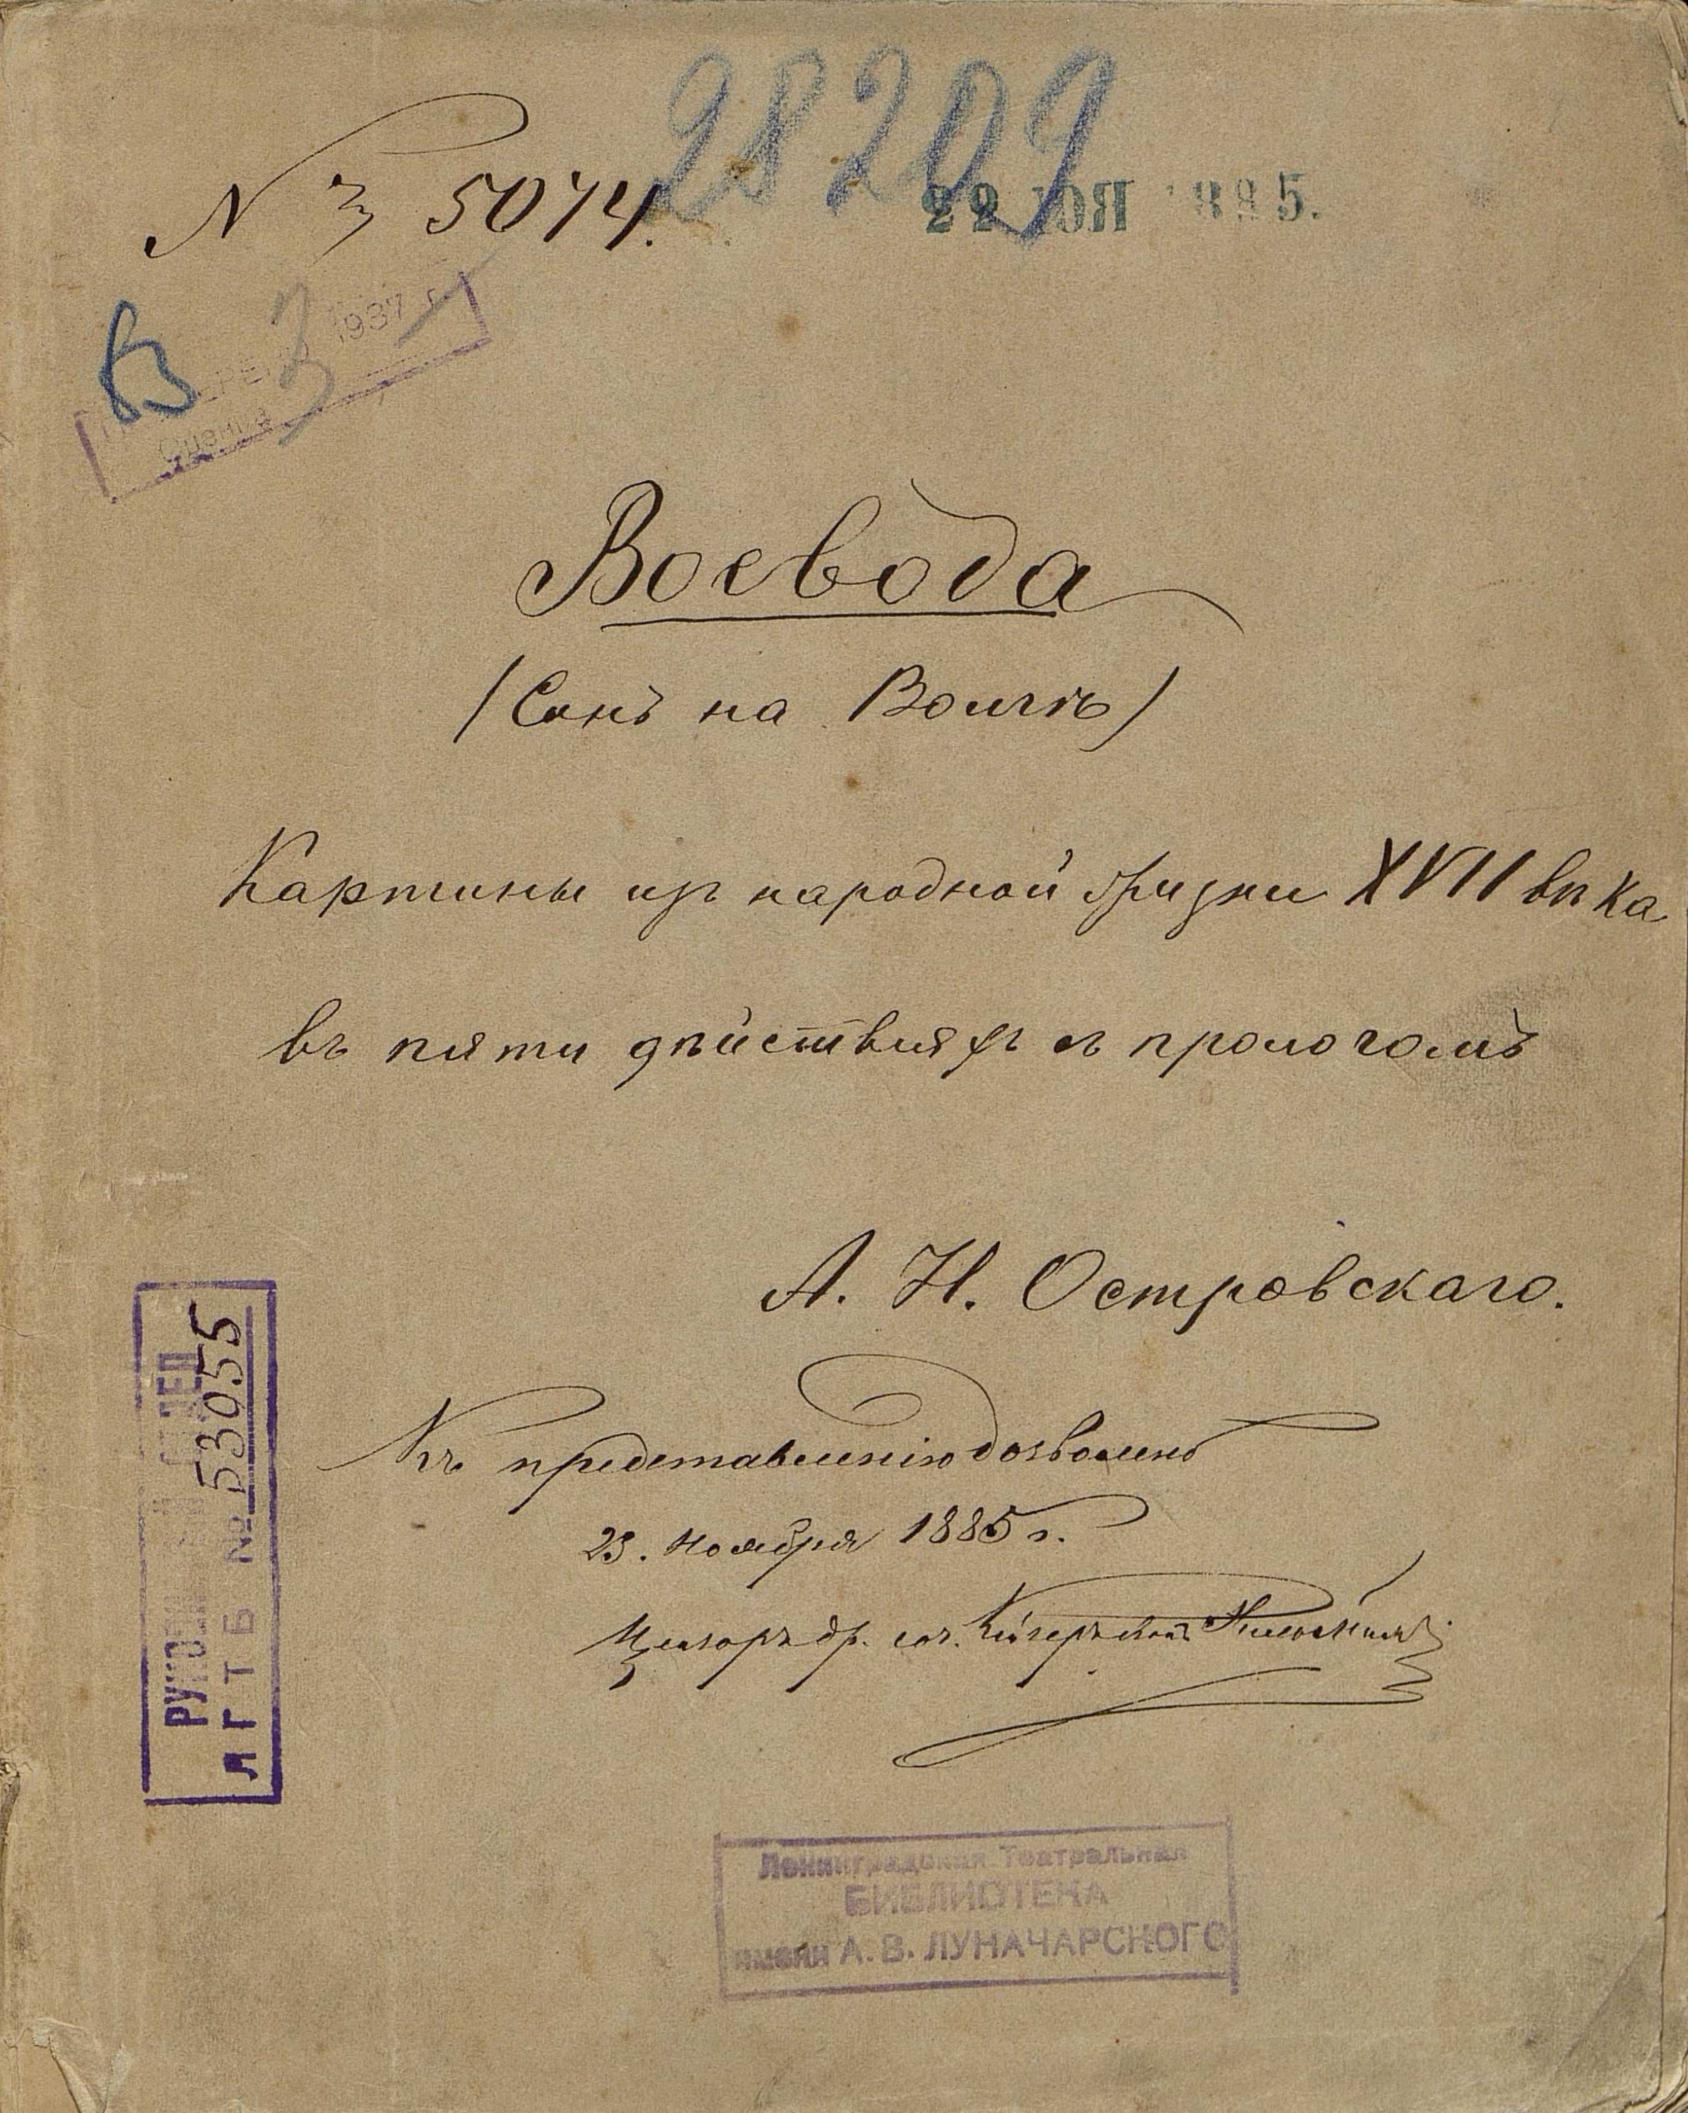 28209
№ 3 5074.
22 НОЯ 1885.
В 3
1937 г.
Оценка
Воевода
(Сонъ на Волгѣ)
Картины изъ народной жизни XVII вѣка
въ пяти дѣйствіяхъ съ прологомъ
А. Н. Островскаго.
Къ представленію дозволено
23. Ноября 1885 г.
Цензоръ др. соч.
53055
ЛГТБ №
Ленинградская Театральная
БИБЛИОТЕКА
имени А. В. ЛУНАЧАРСКОГО